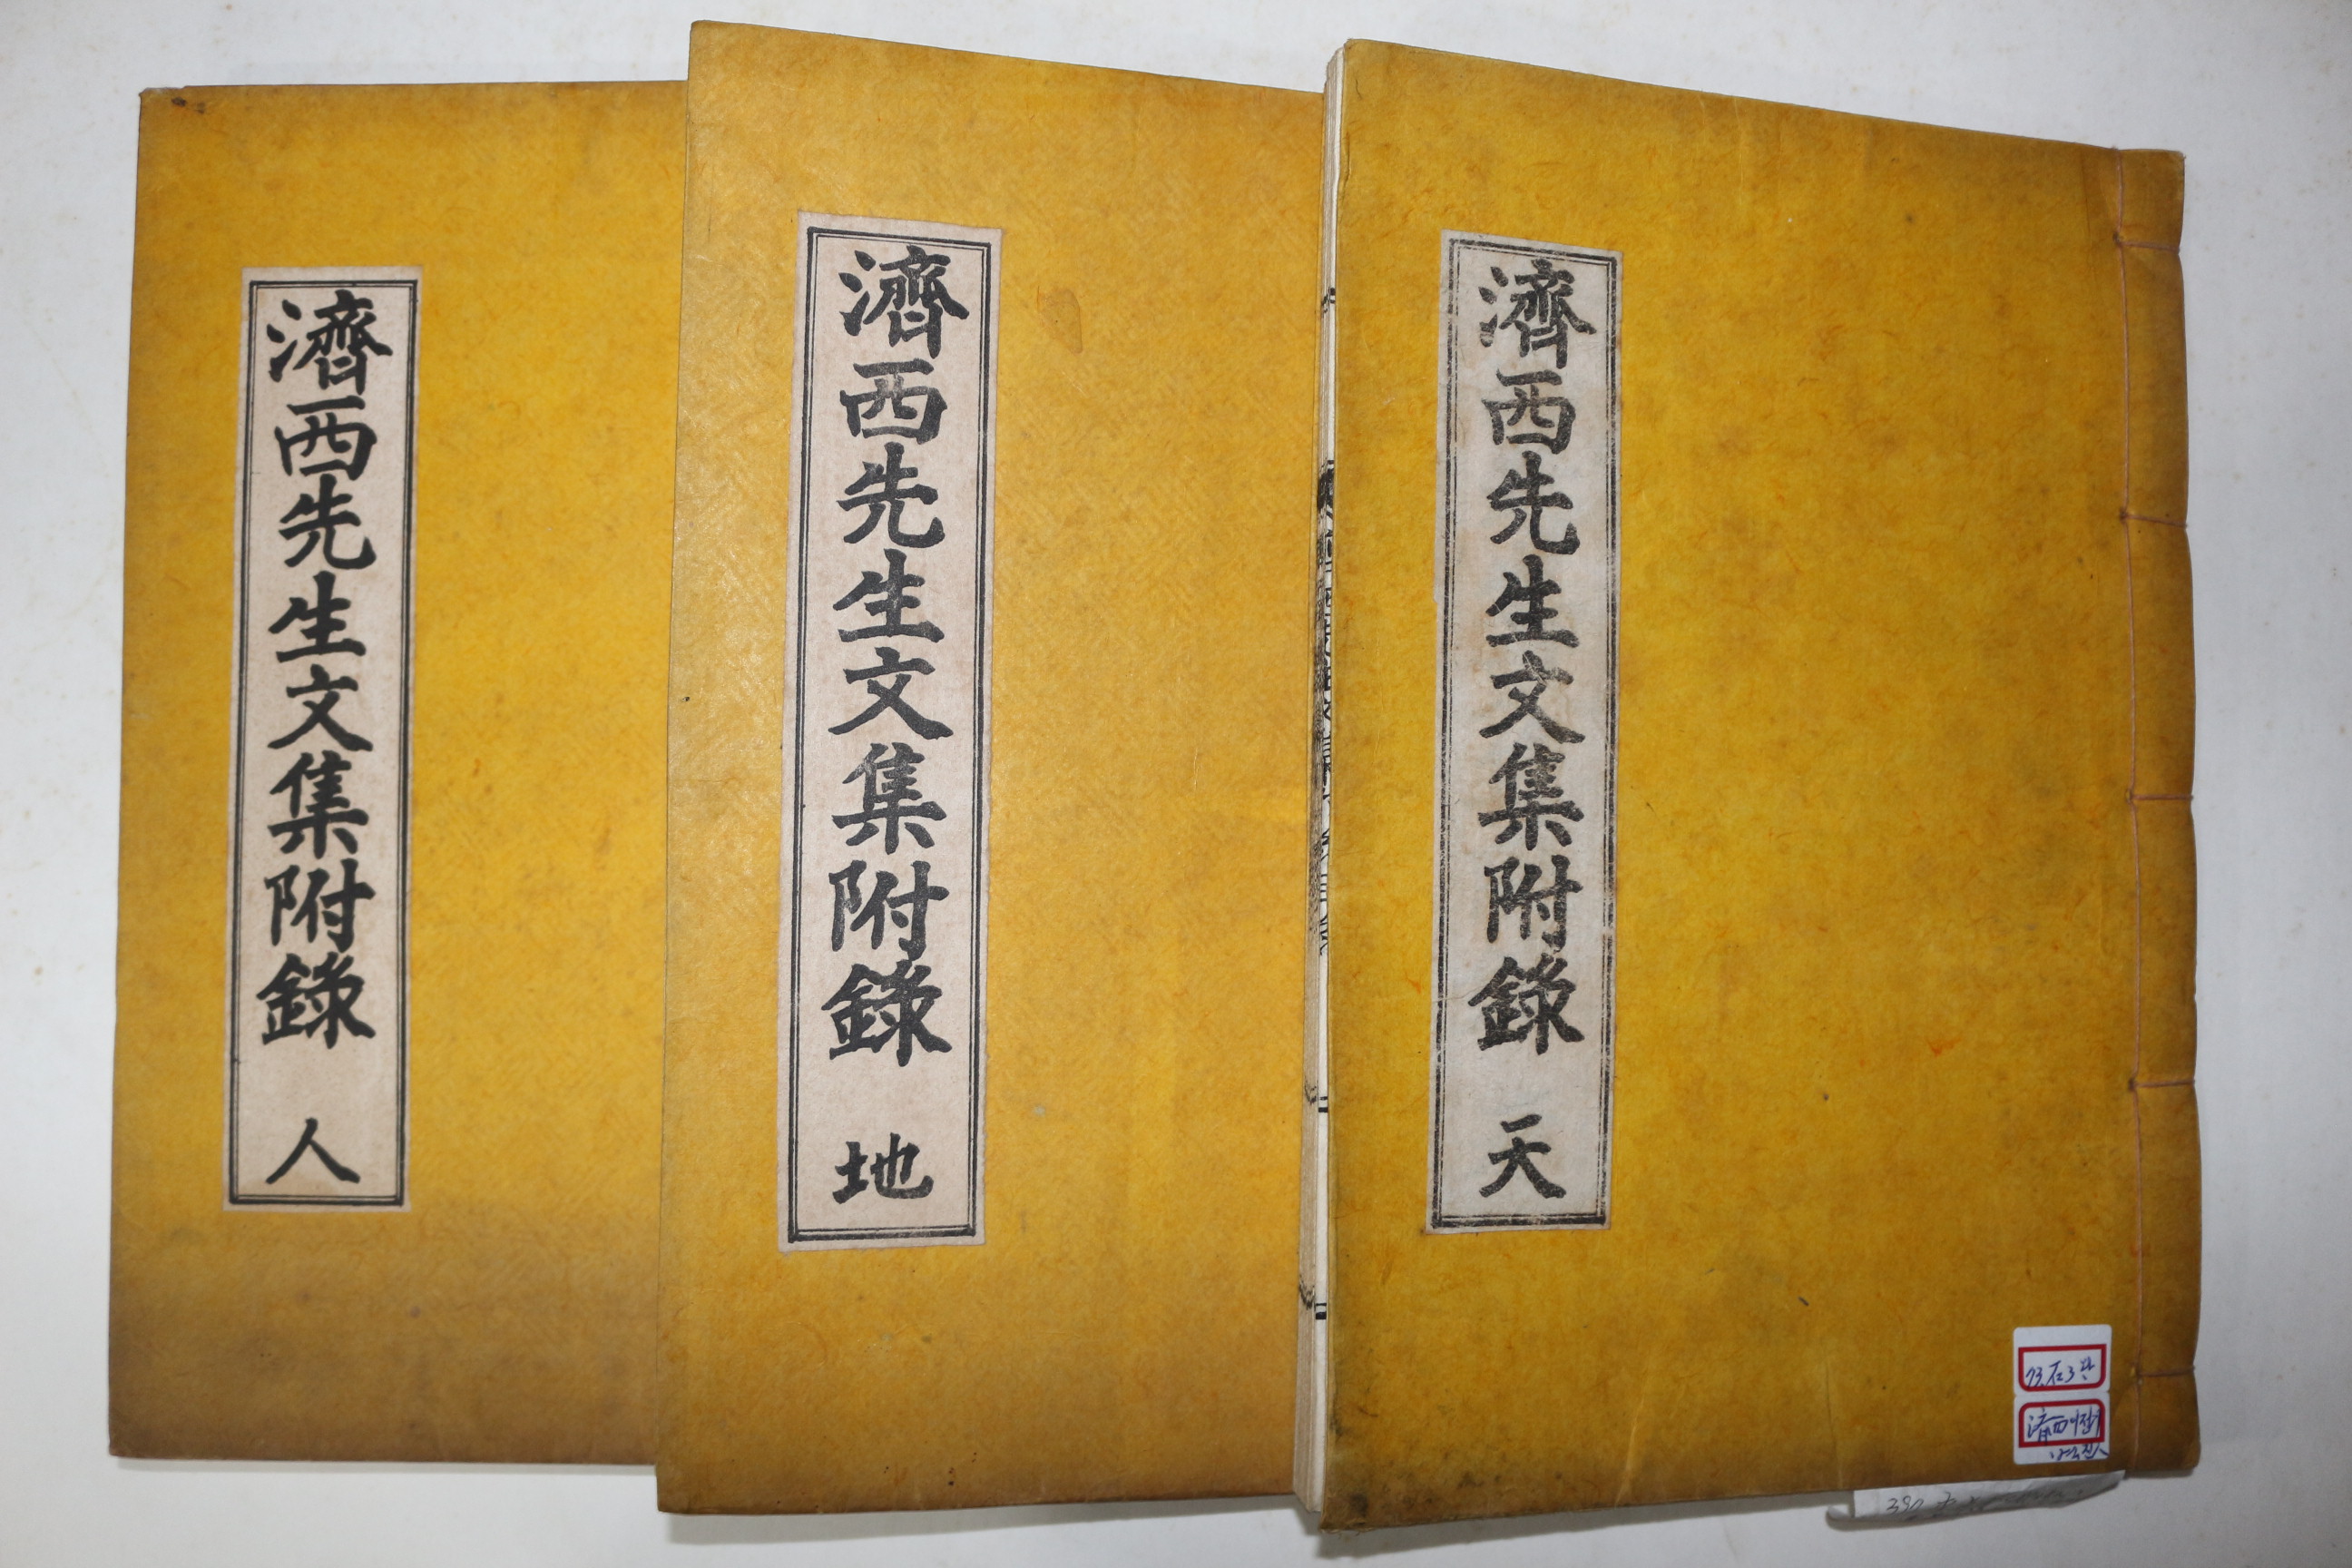 濟西先生文集附錄 天
濟西先生文集附錄 地
濟西先生文集附錄 人